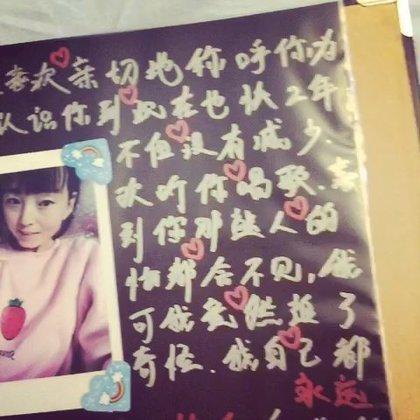 喜欢亲切地称呼你为
认识你到现在也快2年
不但没有减少.
欢听你唱歌.
到你那些人的
怕都会不见,
可我竟然追了
奇怪.我自己都
永远